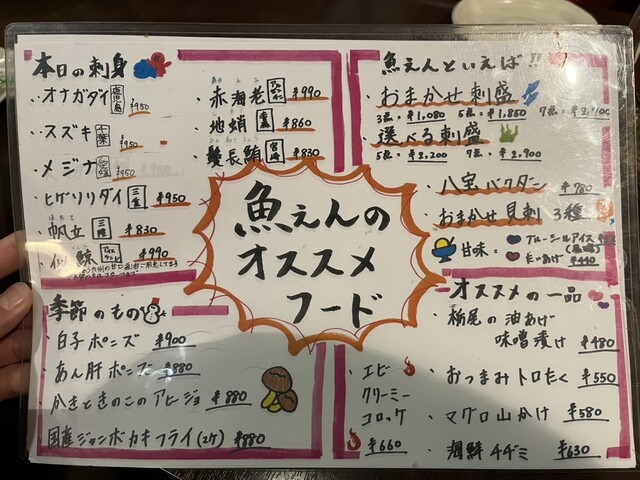 本日の刺身
・オナガダイ 鹿児島 ¥950
・スズキ 千葉 ¥950
・メジナ ¥950
・ヒゲソリダイ 三重 ¥950
・帆立 三陸 ¥830
ほたて
・鯨 アイスランド ¥990
・赤海老 ¥990
・地蛸 ¥860
・鬢長鮪 宮崎 ¥830
魚えんといえば!!
・おまかせ刺盛
3点=¥1,080 5点=¥1,850 7点=
・選べる刺盛
5点=¥2,200 7点=¥2,900
・八宝バクダン ¥780
・おまかせ貝刺 3種
甘味= ブルーシールアイス
¥440
魚えんの
オススメ
フード
季節のもの
・白子ポニズ ¥900
・あん肝ポニズ ¥880
・かきときのこのアヒージョ ¥880
国産ジャンボカキフライ(2ケ) ¥880
オススメの一品
・栃尾の油あげ
味噌漬け ¥480
・エビ
クリーミー
コロッケ
¥660
・おつまみトロたく ¥550
・マグロ山かけ ¥580
・海鮮チヂミ ¥630